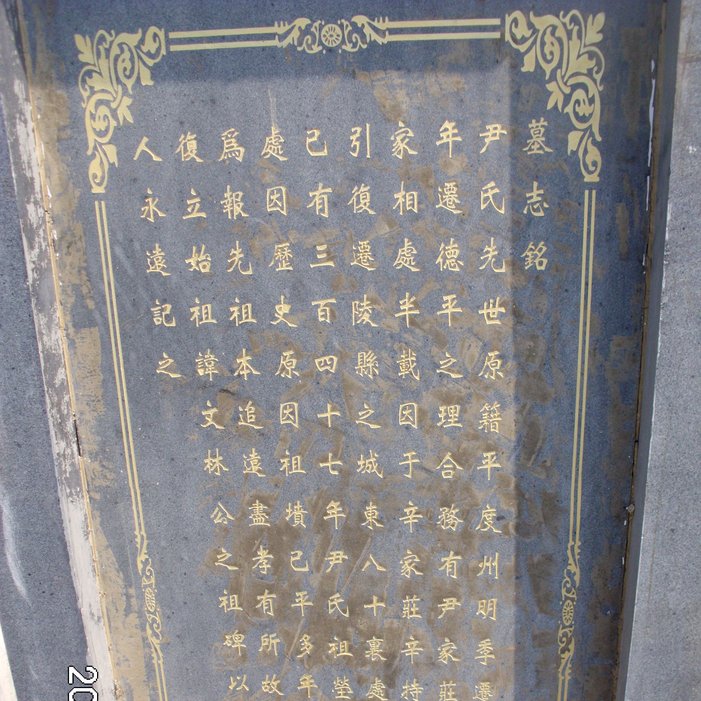 墓志銘
尹氏先世原籍平度州明季遷
年遷德平之理合務有尹家莊
家相處半載因于辛家莊辛持
引復遷陵縣之城東八十裏處
已有三百四十七年尹氏祖塋
處因歷史原因祖墳已平多年
爲報先祖本追遠盡孝有所故
復立始祖諱文林公之祖碑以
人永遠記之
20